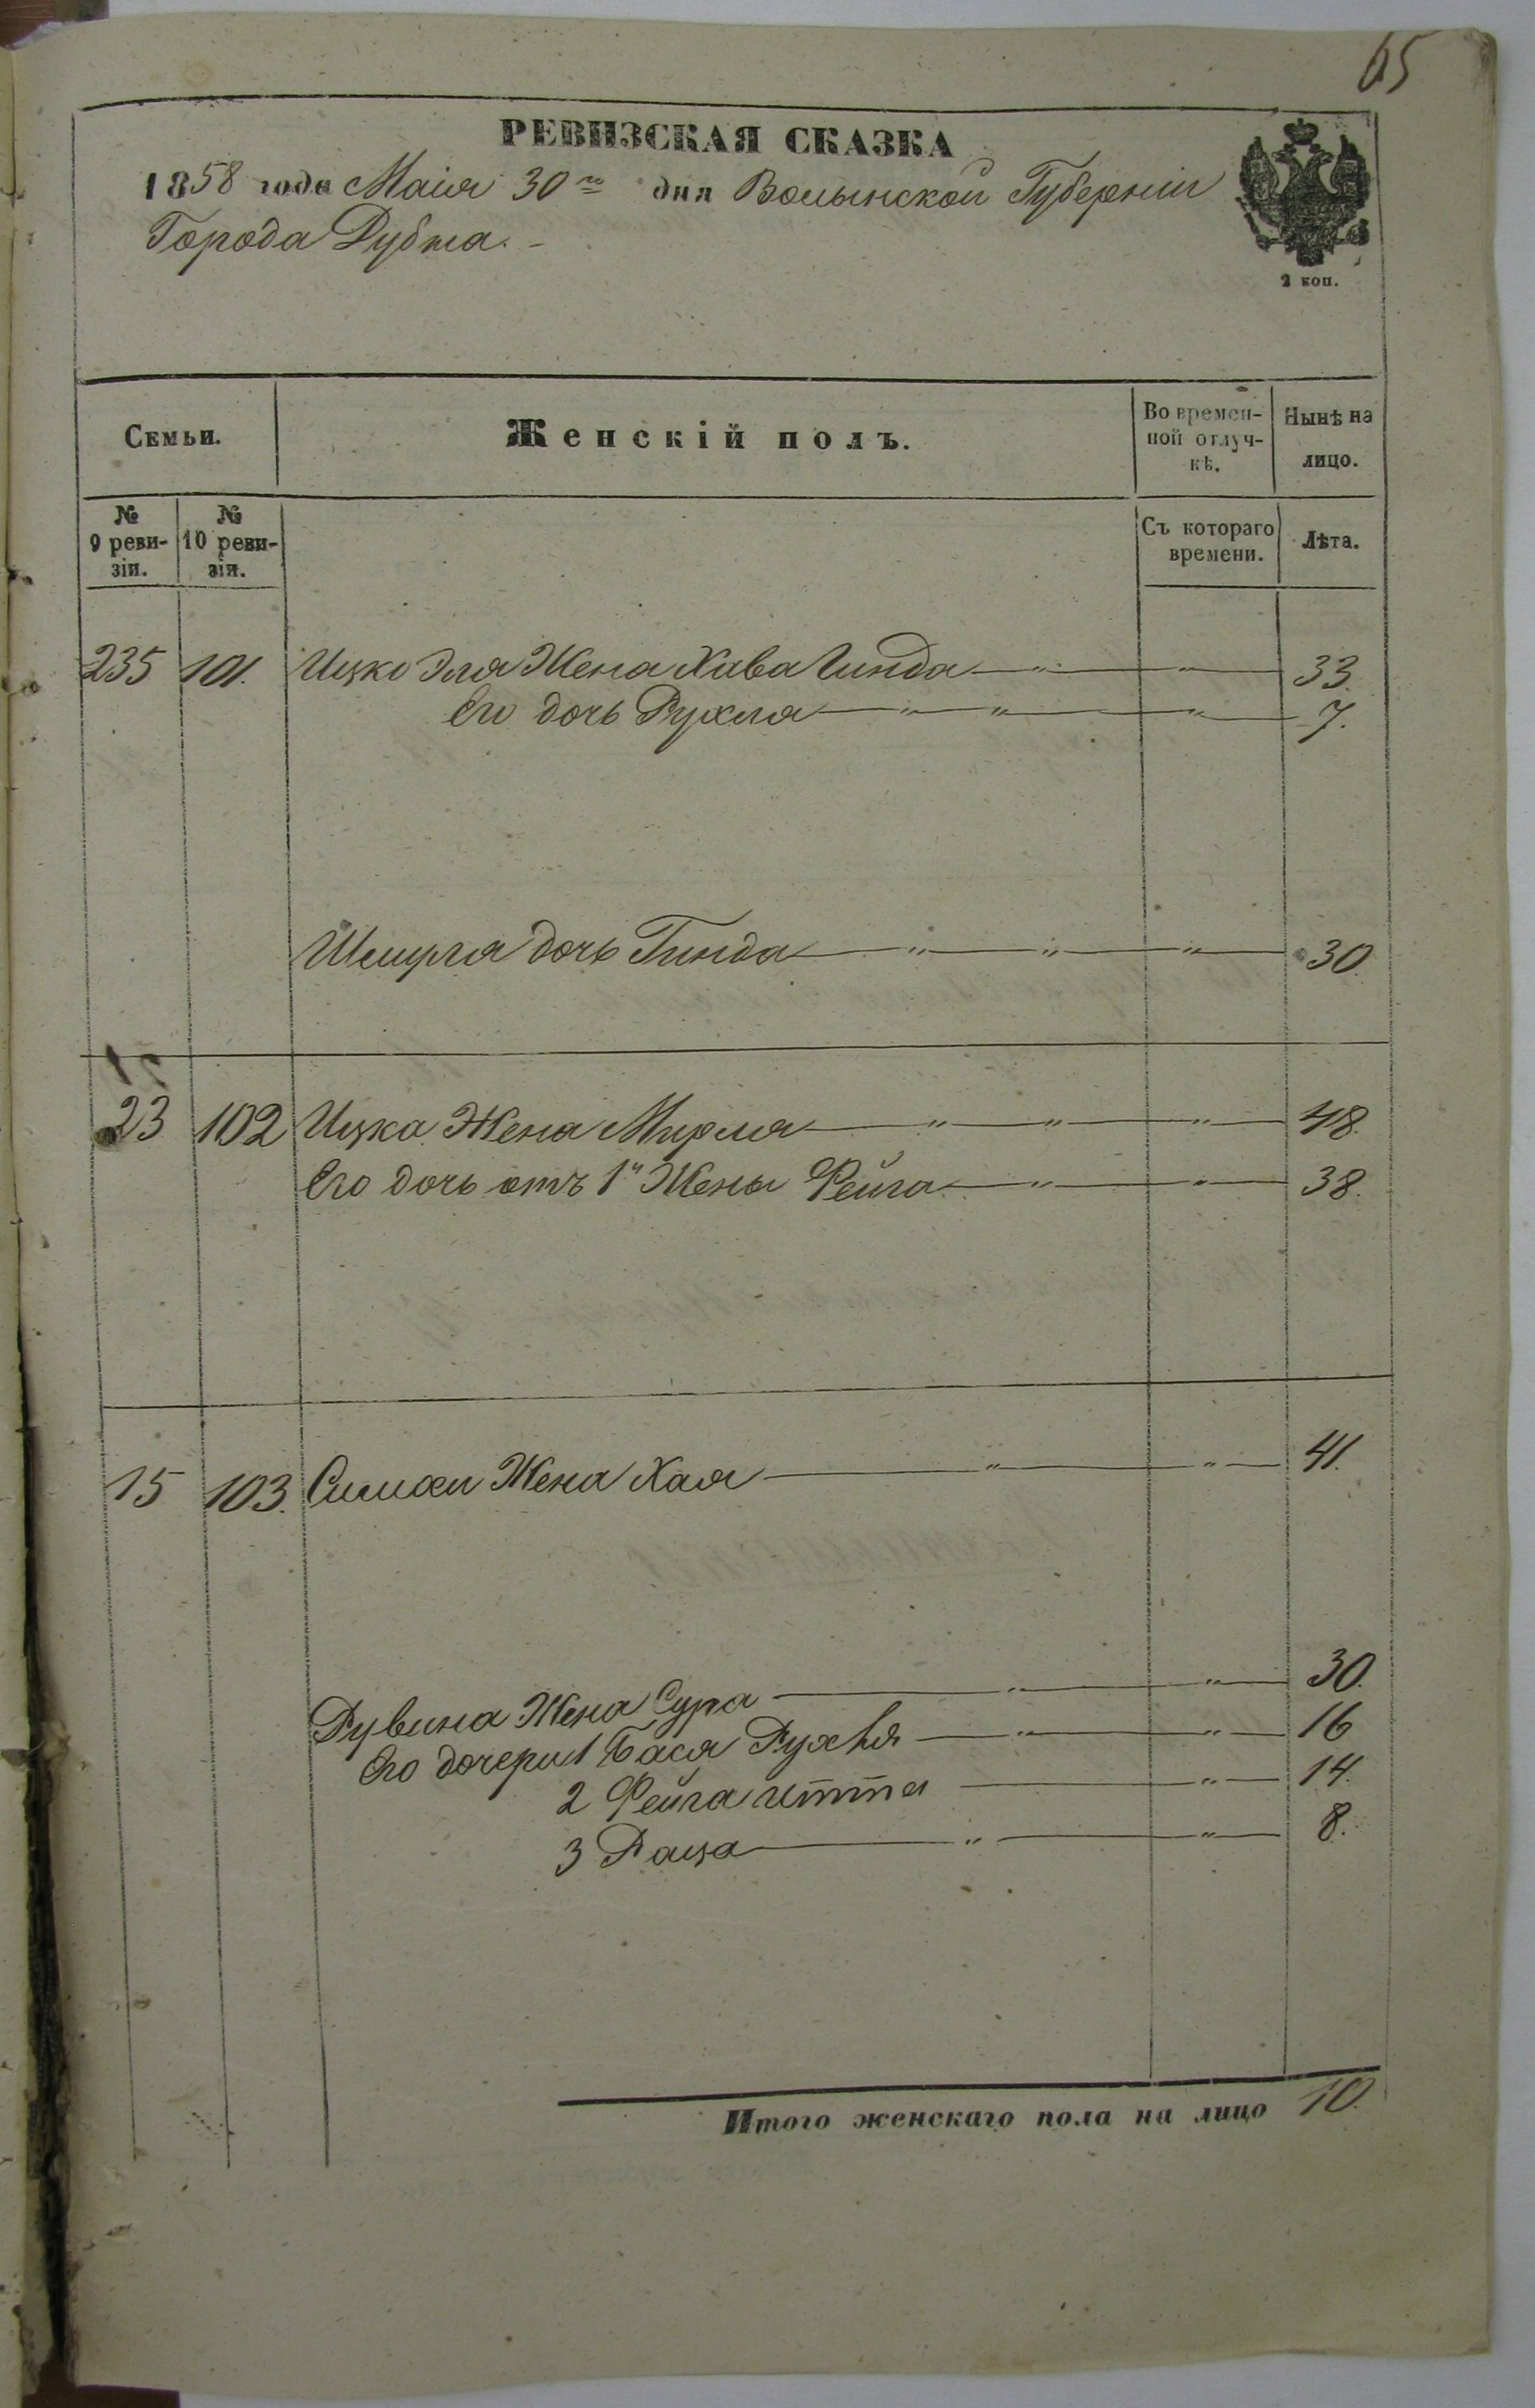 65
РЕВИЗСКАЯ СКАЗКА
1858 года Маія 30го дня Волынской Губерніи
Города Дубна.
2 коп.
Семьи.
Женскій полъ.
Во времен-
ной отлуч-
кѣ.
Нынѣ на
лицо.
№
9 реви-
зіи.
№
10 реви-
зіи.
Съ котораго
времени.
Лѣта.
235 101. Ицко Эля Жена Хава Гинда 33.
Его дочь Рухля 7.
Шмуля дочь Гинда 30
23 102 Ицка Жена Мирля 48.
Его дочь отъ 1й Жены Фейга 38.
15 103. Симхи Жена Хая 41.
Рувина Жена Сура 30.
Его дочери 1 Бася Рухля 16
2 Фейга Итта 14.
3 Раца 8.
Итого женскаго пола на лицо 10.